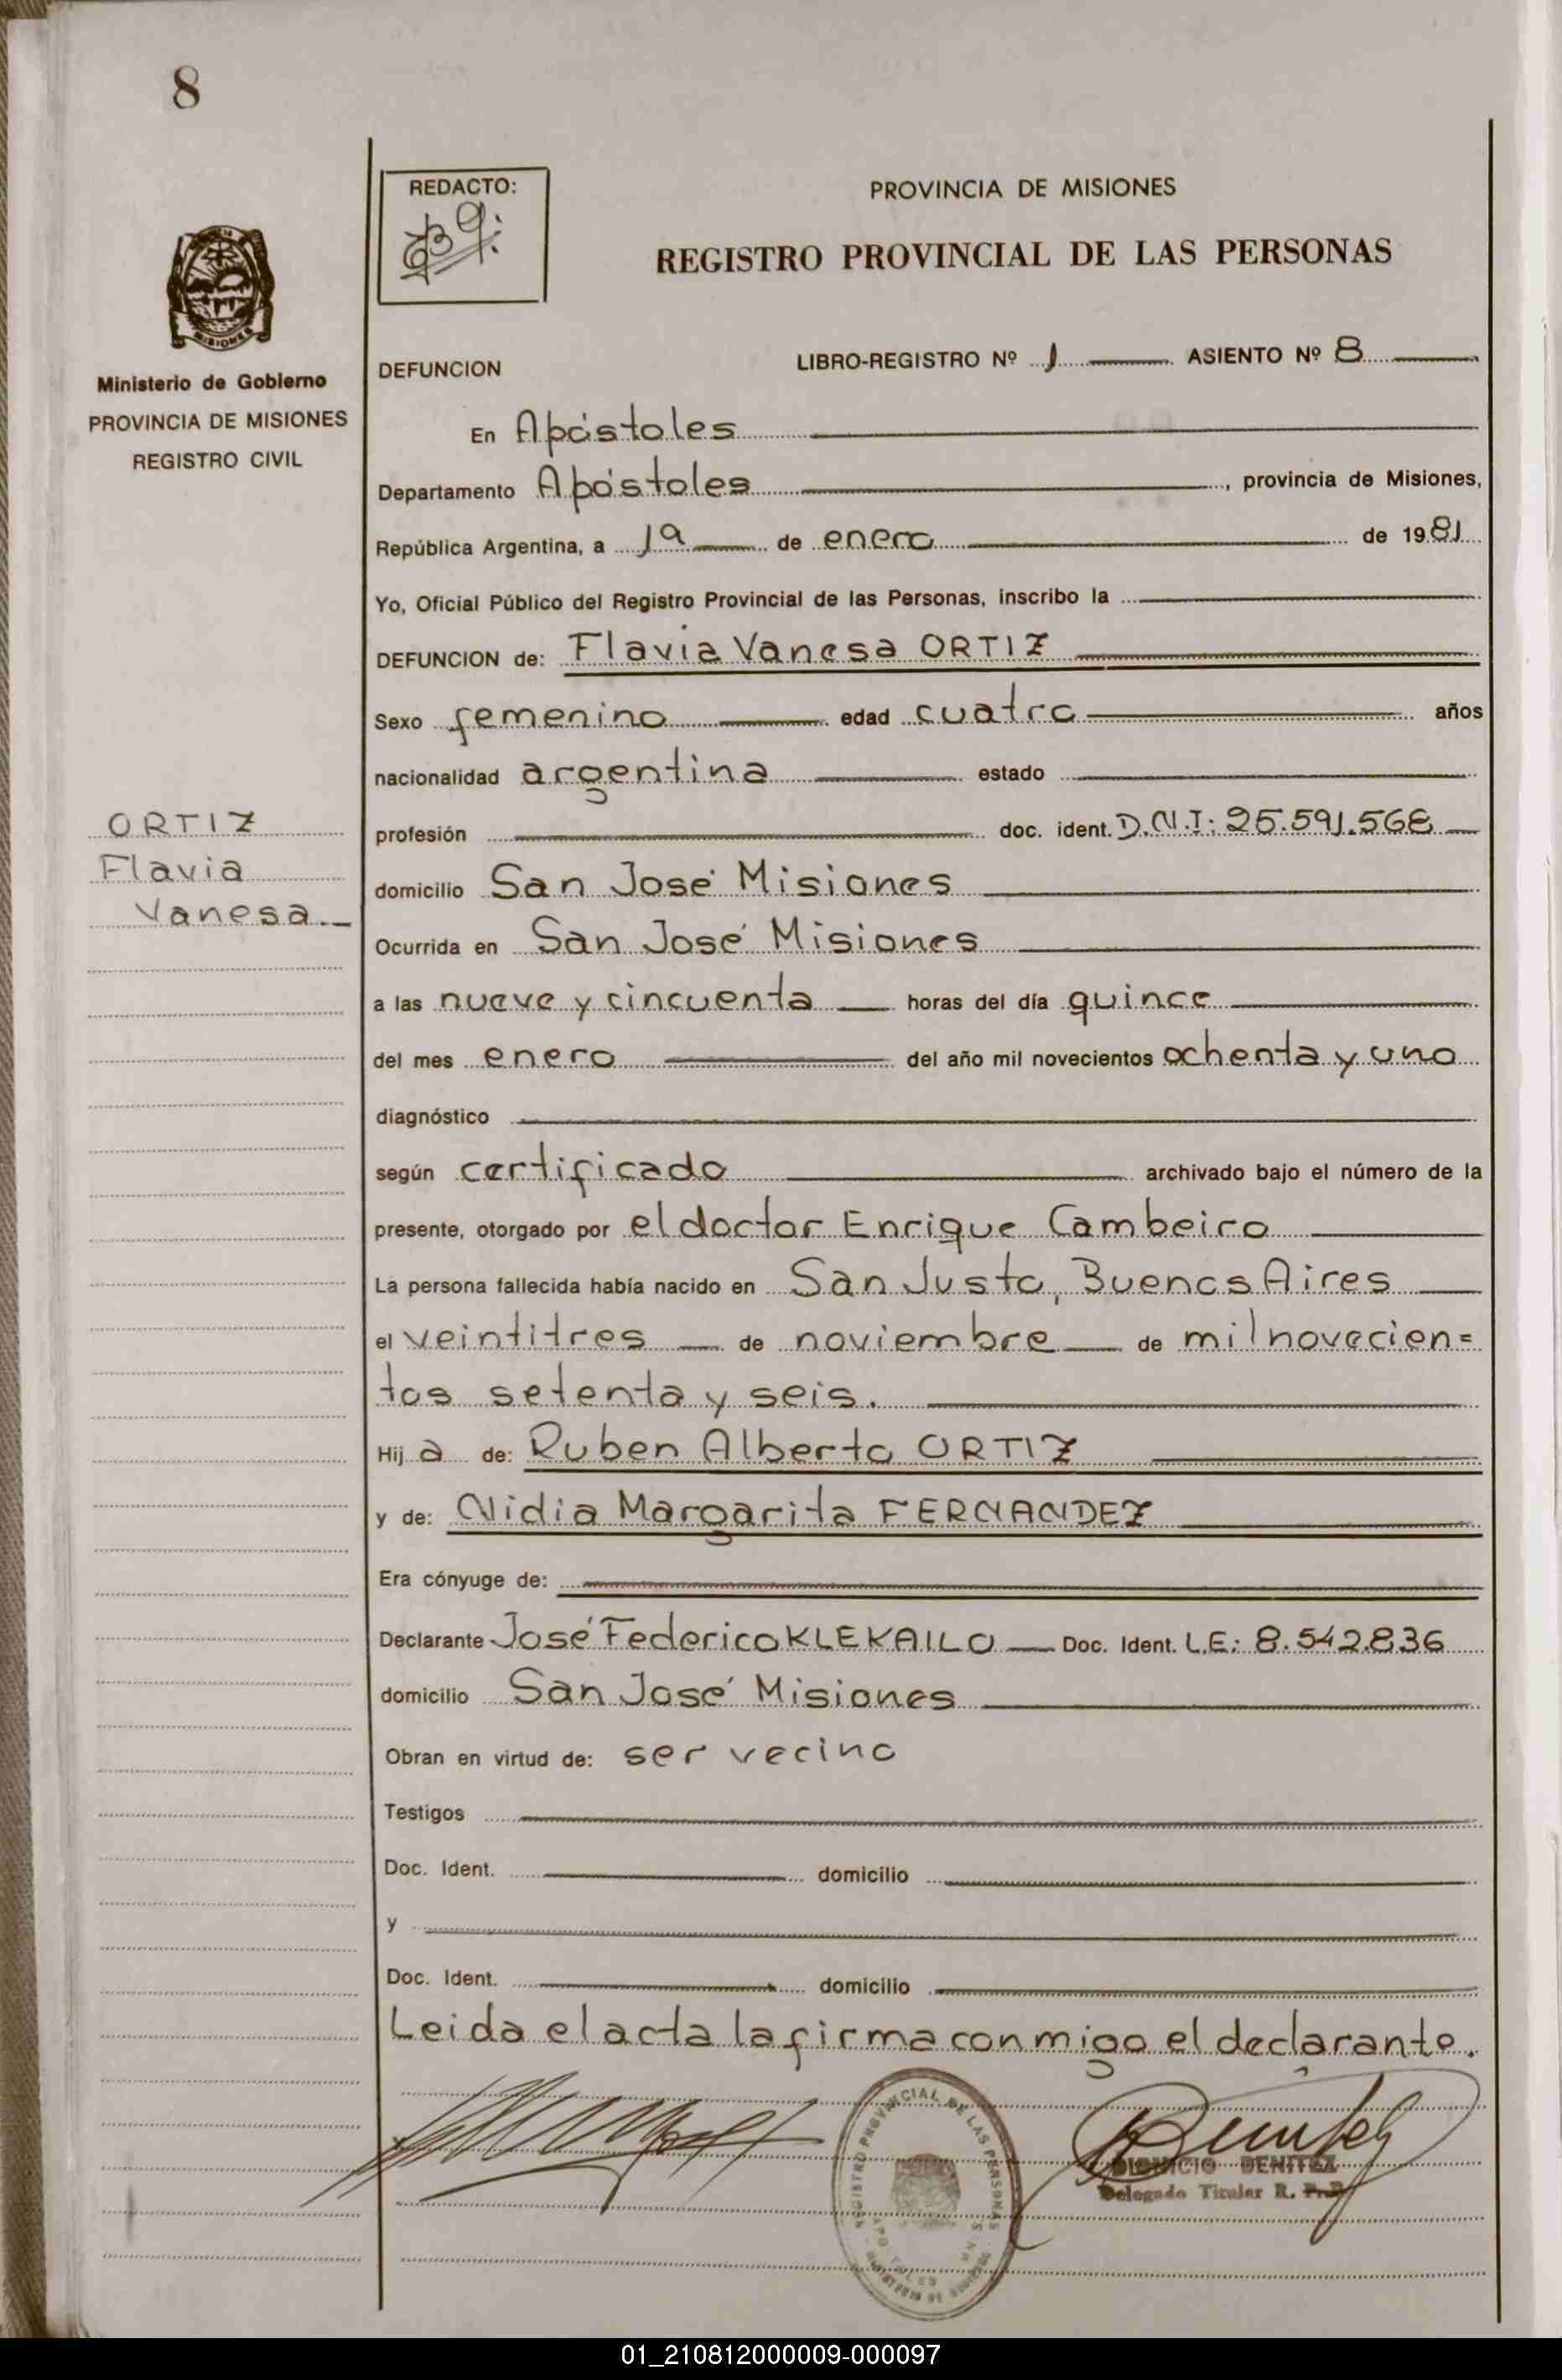 8
REDACTO:
PROVINCIA DE MISIONES
REGISTRO PROVINCIAL DE LAS PERSONAS
MISIONES
Ministerio de Gobierno
PROVINCIA DE MISIONES
REGISTRO CIVIL
DEFUNCION LIBRO-REGISTRO Nº 1 ASIENTO Nº 8
En Apóstoles
Departamento Apóstoles, provincia de Misiones,
República Argentina, a de enero de 1981
Yo, Oficial Público del Registro Provincial de las Personas, inscribo la
DEFUNCION de: Flavia Vanesa ORTIZ
Sexo femenino edad cuatro años
nacionalidad argentina estado
ORTIZ
Flavia
Vanesa.
profesión doc. ident. D.N.I: 25.591.568
domicilio San José Misiones
Ocurrida en San José Misiones
a las nueve y cincuenta horas del día quince
del mes enero del año mil novecientos ochenta y uno
diagnóstico
según certificado archivado bajo el número de la
presente, otorgado por el doctor Enrique Cambeiro
La persona fallecida había nacido en San Justo, Buenos Aires
el veintitres de noviembre de mil novecien=
tos setenta y seis.
Hija de: Ruben Alberto ORTIZ
y de: Nidia Margarita FERNANDEZ
Era cónyuge de:
Declarante José Federico KLEKAILO Doc. Ident. L.E: 8.542.836
domicilio San José Misiones
Obran en virtud de: ser vecino
Testigos
Doc. Ident. domicilio
y
Doc. Ident. domicilio
Leida el acta la firma conmigo el declarante.
REGISTRO PROVINCIAL DE LAS PERSONAS
DIONICIO BENITEZ
Delegado Titular R. P. P.
01_210812000009-000097